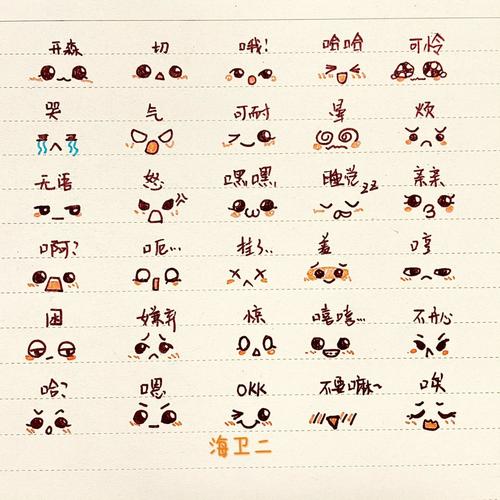 开森 切 哦! 哈哈 可怜
哭 气 可耐 晕 烦
无语 怒 嘿嘿 睡觉zz 亲亲
啊? 呃… 挂了… 羞 哼
困 嫌弃 惊 嘻嘻… 不开心
哈? 嗯 OKK 不要嘛~ 唉
海卫二